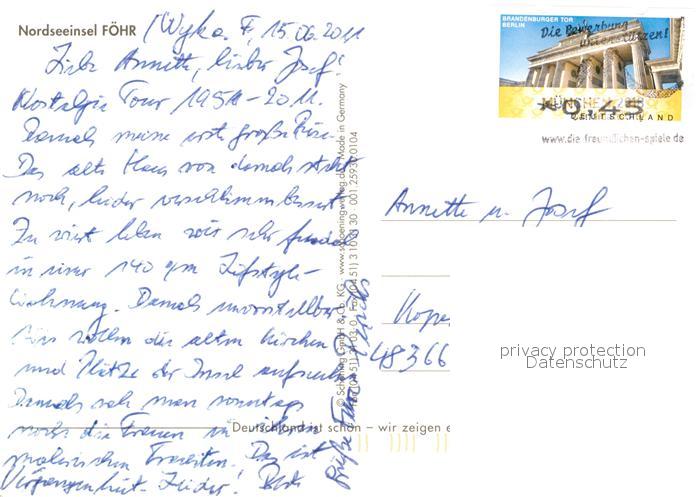 Nordseeinsel FÖHR
(Wyk a. F, 15.06.2011
Liebe Annette, lieber Josef!
Nostalgie Tour 1951-2011.
Damals meine erste große Reise.
Das alte Haus von damals steht
noch, leider verschlimmbessert
Zu viert leben wir sehr feudal
in einer 140 qm Lifestyle-
Wohnung. Damals unvorstellbar
wollen die alten Kirchen
und Plätze der Insel aufsuchen
Damals sah man sonntags
noch die Frauen in ihren
malerischen Trachten. Das ist
Vergangenheit. Leider!
Grüße
© Schöning GmbH & Co. KG · www.schoening-verlag.de · Made in Germany
BRANDENBURGER TOR
BERLIN
Die Bewerbung
unterstützen!
MÜNCHEN 2018
0,45
DEUTSCHLAND
www.die-freundlichen-spiele.de
Annette u. Josef
48366
privacy protection
Datenschutz
Deutschland ist schön – wir zeigen e